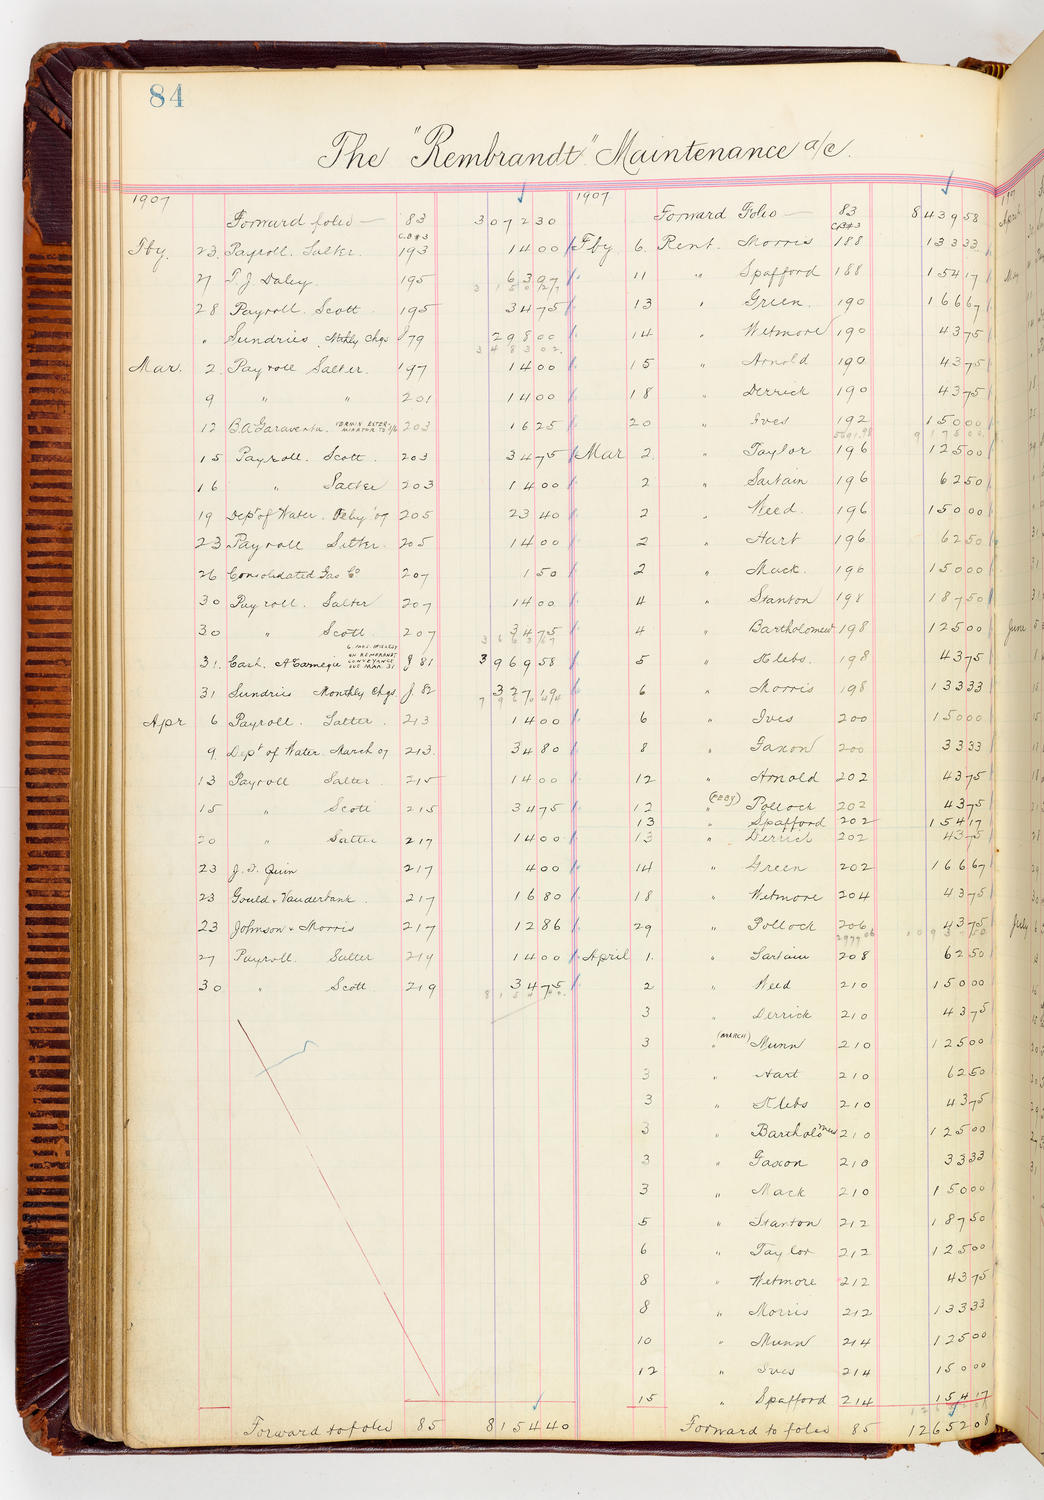 84
The "Rembrandt" Maintenance a/c.
1907
Forward folio — 83 3072 30
C.B#3
Fby. 23. Payroll. Salter. 193 14 00
27 T. J. Daley. 195 63 97
3150 27
28 Payroll. Scott 195 34 75
" Sundries. Mthly Chgs J79 298 00
3483 02
Mar. 2. Payroll Salter. 197 14 00
9 " " 201 14 00
12 B. A. Garaventa. VERMIN EXTER-MINATOR TO 203 16 25
15 Payroll. Scott. 203 34 75
16 " Salter 203 14 00
19 Dept of Water. Feby '07 205 23 40
23 Payroll Salter. 205 14 00
26 Consolidated Gas Co 207 1 50
30 Payroll. Salter 207 14 00
30 " Scott. 207 34 75
6 MOS. INTEREST
ON REMBRANDT
CONVEYANCE
DUE MAR. 31
31. Cash. A Carnegie J 81 3969 58
31 Sundries Monthly Chgs. J. 82 327 19
Apr 6 Payroll. Salter. 213 14 00
9. Dept of Water. March 07 213. 34 80
13 Payroll Salter. 215 14 00
15 " Scott 215 34 75
20 " Salter 217 14 00
23 J. F. Quin 217 4 00
23 Gould & Vanderbank. 217 16 80
23 Johnson & Morris 217 12 86
27 Payroll. Salter 219 14 00
30 " Scott 219 34 75
Forward to folio 85 8154 40
1907
Forward Folio — 83 8439 58
CB#3
Fby 6. Rent. Morris 188 133 33
11 " Spafford 188 154 17
13 " Green. 190 166 67
14 " Wetmore 190 43 75
15 " Arnold 190 43 75
18 " Derrick 190 43 75
20 " Ives 192 150 00
5691.98 9175 02
Mar 2. " Taylor 196 125 00
2 " Sartain 196 62 50
2 " Weed. 196 150 00
2 " Hart 196 62 50
2 " Mack. 196 150 00
4 " Stanton 198 187 50
4 " Bartholomew 198 125 00
5 " Klebs. 198 43 75
6 " Morris 198 133 33
6 " Ives 200 150 00
8 " Gaxon 200 33 33
12 " Arnold 202 43 75
12 (FEBY) " Pollock 202 43 75
13 " Spafford 202 154 17
13 " Derrick 202 43 75
14 " Green 202 166 67
18 " Wetmore 204 43 75
29 " Pollock 206 43 75
2979 06
April 1. " Sartain 208 62 50
2 " Weed 210 150 00
3 " Derrick 210 43 75
3 (MARCH) " Munn 210 125 00
3 " Hart 210 62 50
3 " Klebs 210 43 75
3 " Bartholomew 210 125 00
3 " Gaxon 210 33 33
3 " Mack 210 150 00
5 " Stanton 212 187 50
6 " Taylor 212 125 00
8 " Wetmore 212 43 75
8 " Morris 212 133 33
10 " Munn 214 125 00
12 " Ives 214 150 00
15 " Spafford 214 154 17
Forward to folio 85 12652 08
April
May
June
July